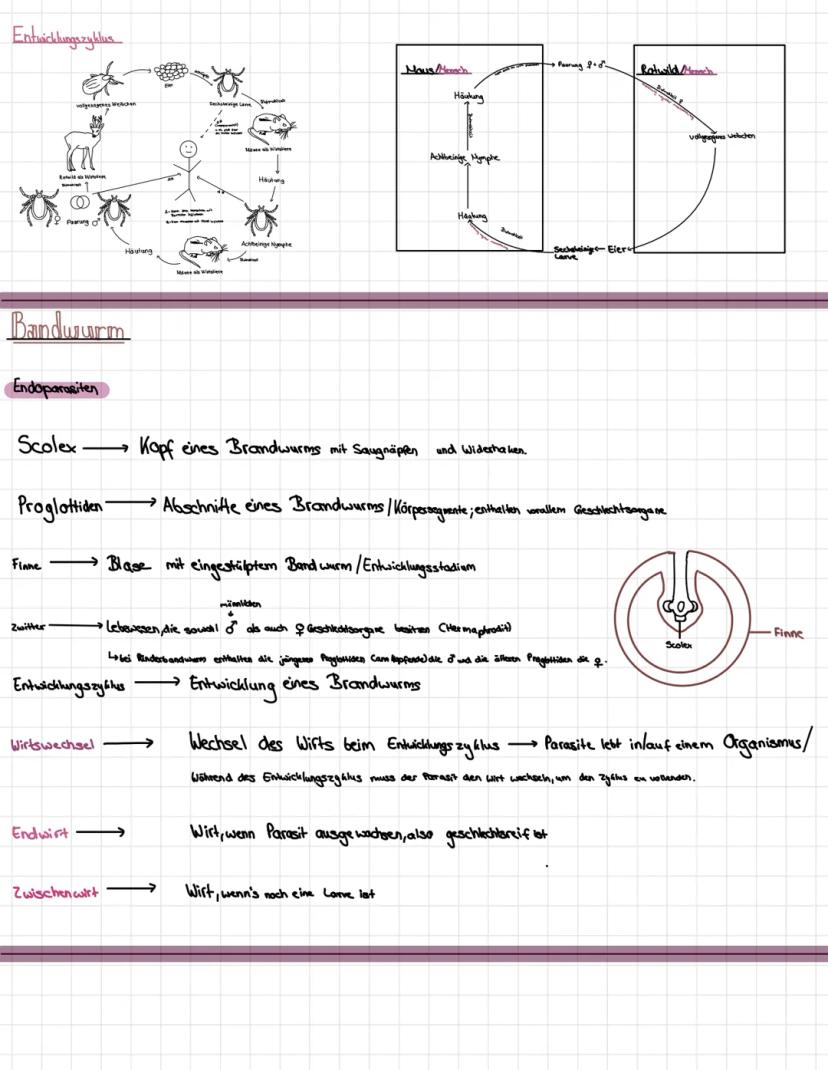 Entwicklungszyklus
Eier
vollgesogenes Weibchen
Sechsbeinige Larve
Blutmahlzeit
Mäuse als Wirtstiere
Häutung
Rotwild als Wirtstiere
Blutmahlzeit
Paarung
Achtbeinige Nymphe
Häutung
Mäuse als Wirtstiere
Blutmahlzeit
Maus/Mensch
Paarung ♀+♂
Rotwild/Mensch
Häutung
Blutmahlzeit ♀
Blutmahlzeit
vollgesogenes Weibchen
Achtbeinige Nymphe
Häutung
Blutmahlzeit
Sechsbeinige Larve ← Eier
Bandwurm
Endoparasiten
Scolex → Kopf eines Brandwurms mit Saugnäpfen und Widerhaken.
Proglottiden → Abschnitte eines Brandwurms/Körpersegmente; enthalten vorallem Geschlechtsorgane
Finne → Blase mit eingestülptem Bandwurm/Entwicklungsstadium
männlichen
Zwitter → Lebewesen, die sowohl ♂ als auch ♀ Geschlechtsorgane besitzen (Hermaphrodit)
↳ bei Rinderbandwurm enthalten die jüngeren Proglottiden (am Kopfende) die ♂ und die älteren Proglottiden die ♀.
Scolex
Finne
Entwicklungszyklus → Entwicklung eines Brandwurms
Wirtswechsel → Wechsel des Wirts beim Entwicklungszyklus → Parasite lebt in/auf einem Organismus/
Während des Entwicklungszyklus muss der Parasit den Wirt wechseln, um den Zyklus zu vollenden.
Endwirt → Wirt, wenn Parasit ausgewachsen, also geschlechtsreif ist
Zwischenwirt → Wirt, wenn's noch eine Larve ist